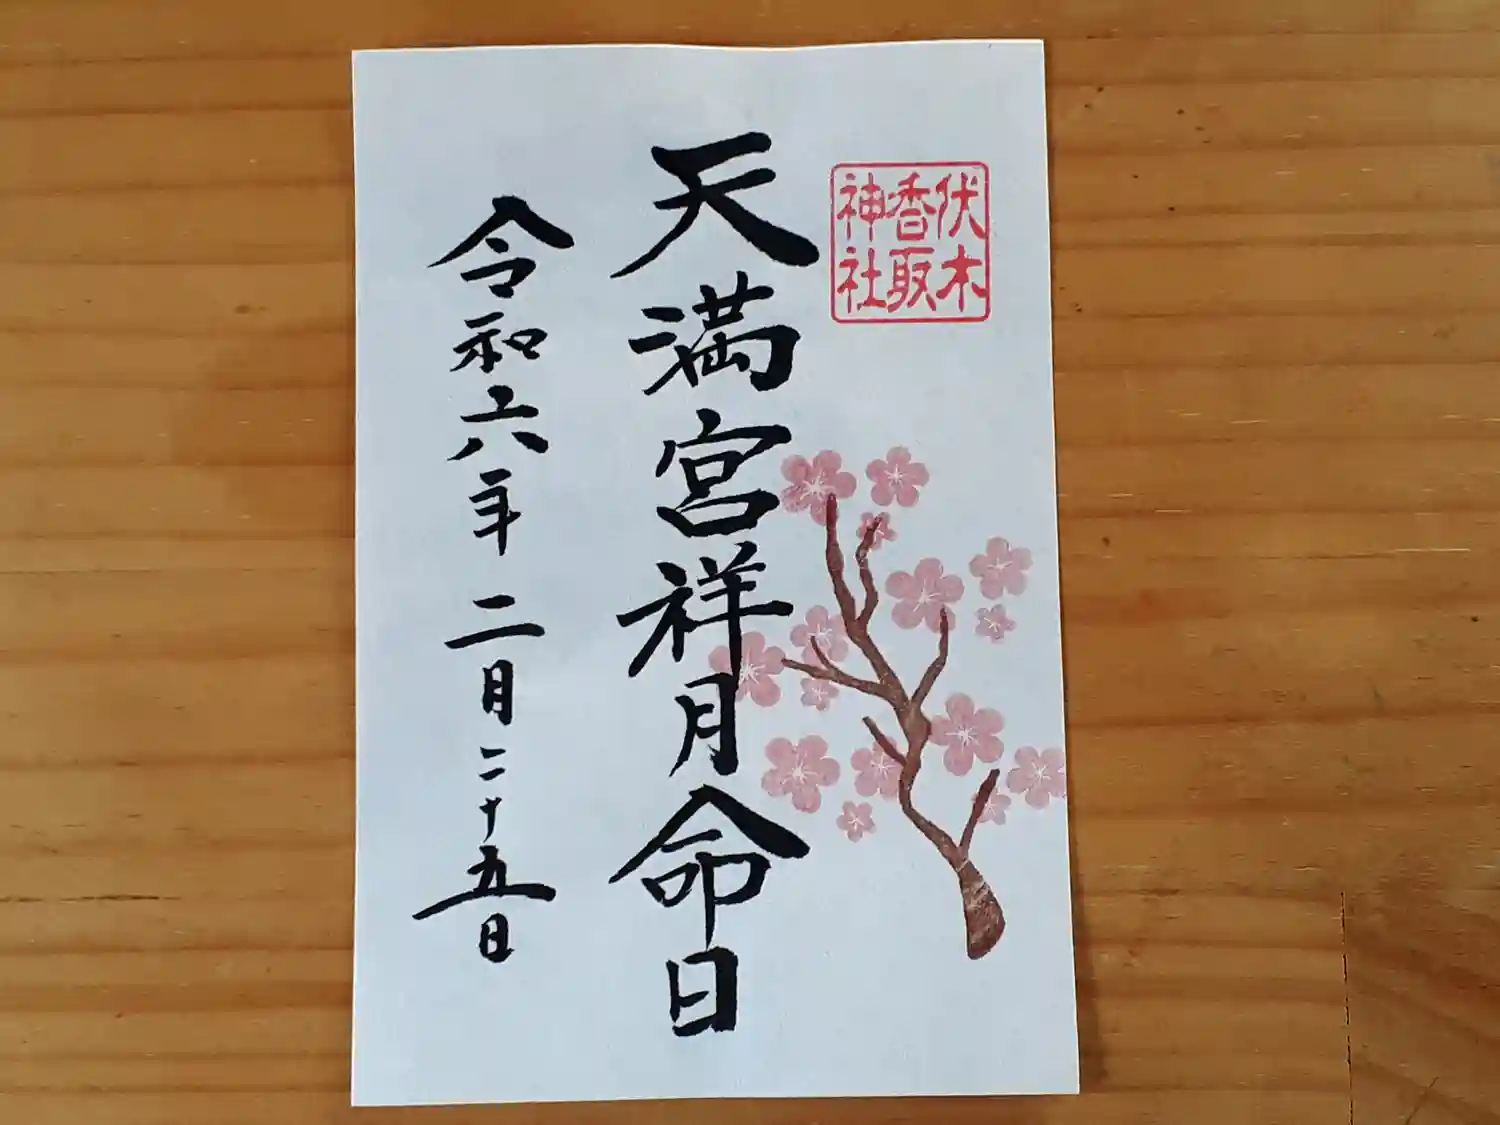 伏木
香取
神社
天満宮祥月命日
令和六年二月二十五日